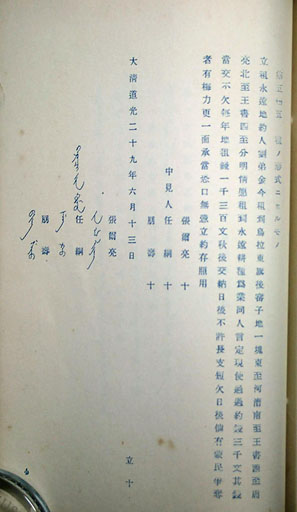 ノ形式ニヨルモノ
立租永遠地約人劉弟金今租到烏拉東旗後地一塊東至河濟南至王書西至唐
堯北至王書四至分明情愿租到永遠耕種爲業同人言定現使過過約錢三千文其錢
當交不欠每年地租錢一千三百文秋後交納日後不許長支短欠日後倘有蒙民爭奪
者有極力更一面承當恐口無憑立約存照用
張爾亮十
中見人任嗣十
朋壽十
大清道光二十九年六月十三日 立十
張爾亮
任嗣
朋壽